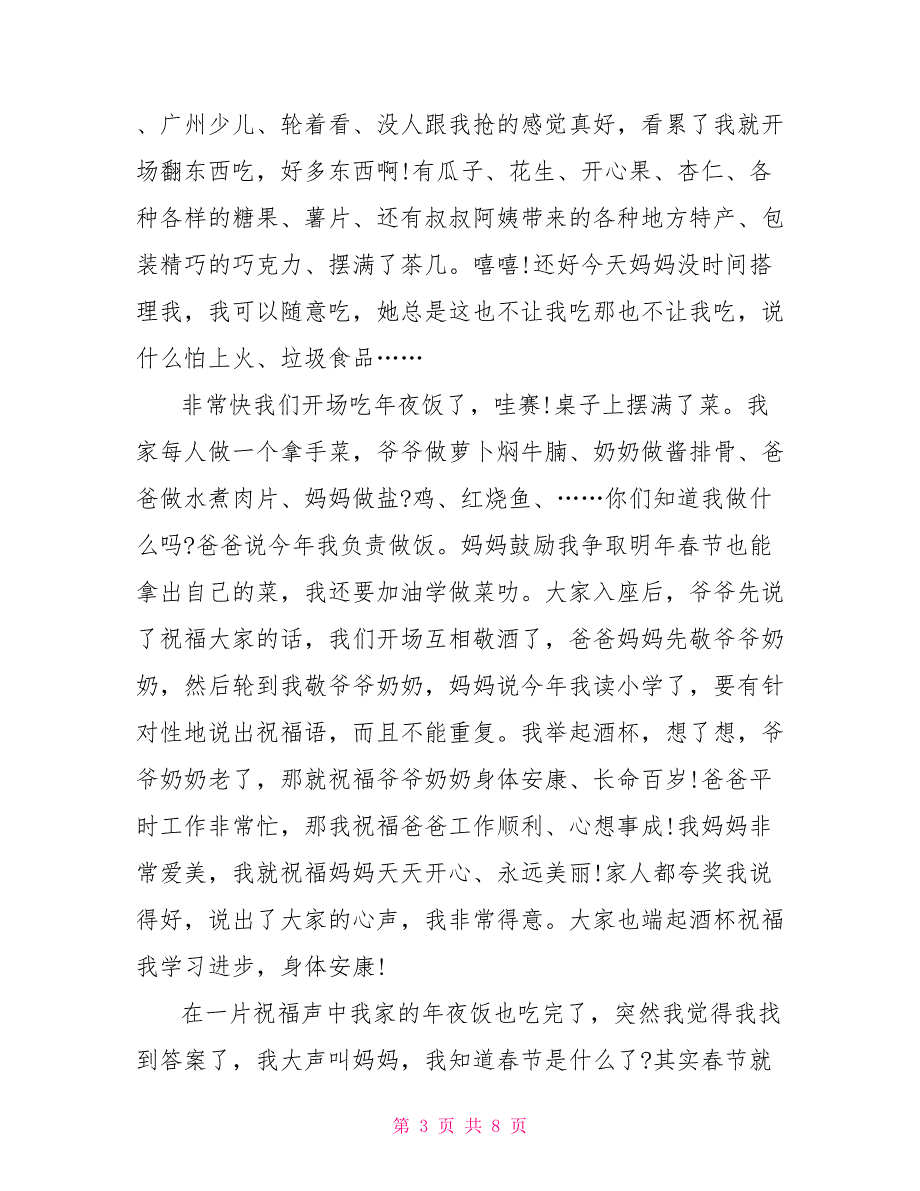 、广州少儿、轮着看、没人跟我抢的感觉真好，看累了我就开
场翻东西吃，好多东西啊!有瓜子、花生、开心果、杏仁、各
种各样的糖果、薯片、还有叔叔阿姨带来的各种地方特产、包
装精巧的巧克力、摆满了茶几。嘻嘻!还好今天妈妈没时间搭
理我，我可以随意吃，她总是这也不让我吃那也不让我吃，说
什么怕上火、垃圾食品……
非常快我们开场吃年夜饭了，哇赛!桌子上摆满了菜。我
家每人做一个拿手菜，爷爷做萝卜焖牛腩、奶奶做酱排骨、爸
爸做水煮肉片、妈妈做盐?鸡、红烧鱼、……你们知道我做什
么吗?爸爸说今年我负责做饭。妈妈鼓励我争取明年春节也能
拿出自己的菜，我还要加油学做菜叻。大家入座后，爷爷先说
了祝福大家的话，我们开场互相敬酒了，爸爸妈妈先敬爷爷奶
奶，然后轮到我敬爷爷奶奶，妈妈说今年我读小学了，要有针
对性地说出祝福语，而且不能重复。我举起酒杯，想了想，爷
爷奶奶老了，那就祝福爷爷奶奶身体安康、长命百岁!爸爸平
时工作非常忙，那我祝福爸爸工作顺利、心想事成!我妈妈非
常爱美，我就祝福妈妈天天开心、永远美丽!家人都夸奖我说
得好，说出了大家的心声，我非常得意。大家也端起酒杯祝福
我学习进步，身体安康!
在一片祝福声中我家的年夜饭也吃完了，突然我觉得我找
到答案了，我大声叫妈妈，我知道春节是什么了?其实春节就
第 3 页 共 8 页